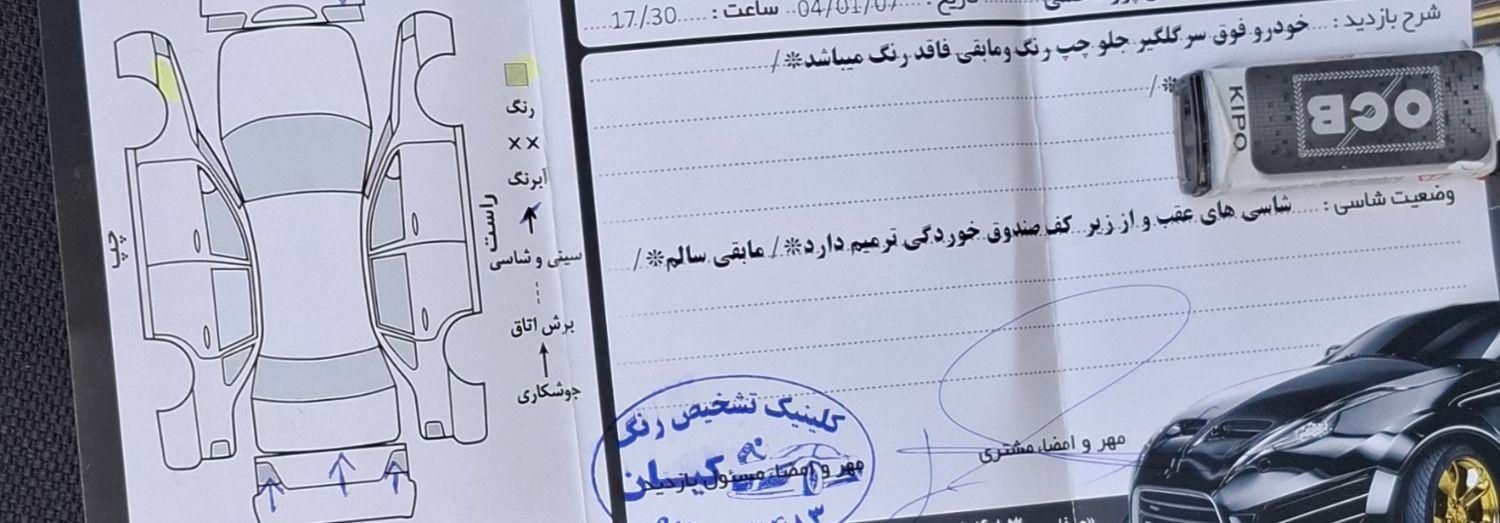 ساعت : 17/30
شرح بازدید : خودرو فوق سر گلگیر جلو چپ رنگ ومابقی فاقد رنگ میباشد❊/
❊/
وضعیت شاسی : شاسی های عقب و از زیر کف صندوق خوردگی ترمیم دارد❊/ مابقی سالم❊/
مهر و امضاء مشتری
مهر و امضاء مسئول بازدید
کلینیک تشخیص رنگ
کیان
OCB
KIPO
رنگ
××
آبرنگ
سینی و شاسی
برش اتاق
جوشکاری
راست
چپ